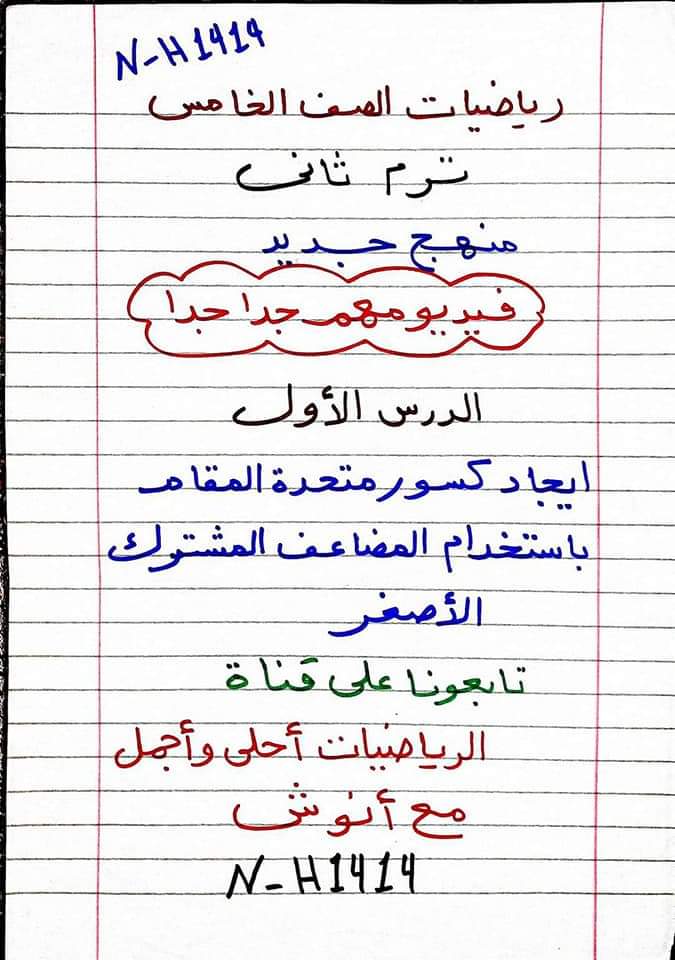 N-H1414
رياضيات الصف الخامس
ترم ثانى
منهج جديد
فيديو مهم جدا جدا
الدرس الأول
ايجاد كسور متحدة المقام
باستخدام المضاعف المشترك
الأصغر
تابعونا على قناة
الرياضيات أحلى وأجمل
مع أنوش
N-H1414